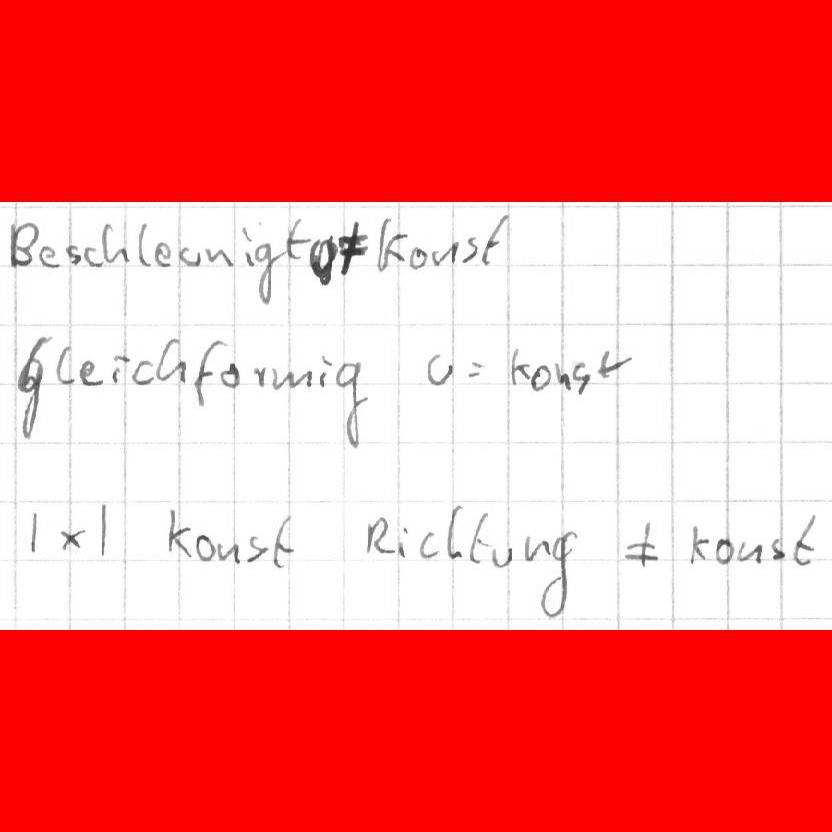 Beschleunigt v ≠ Konst
Gleichformig v = konst
|x| Konst Richtung ≠ konst